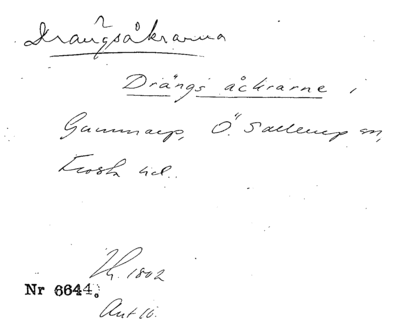 Drängsåkrarna
Drängs åckrarne i
Gummarp, Ö. Sallerup sn,
Frosta hd.
1802
Nr 6644.
Akt 16.